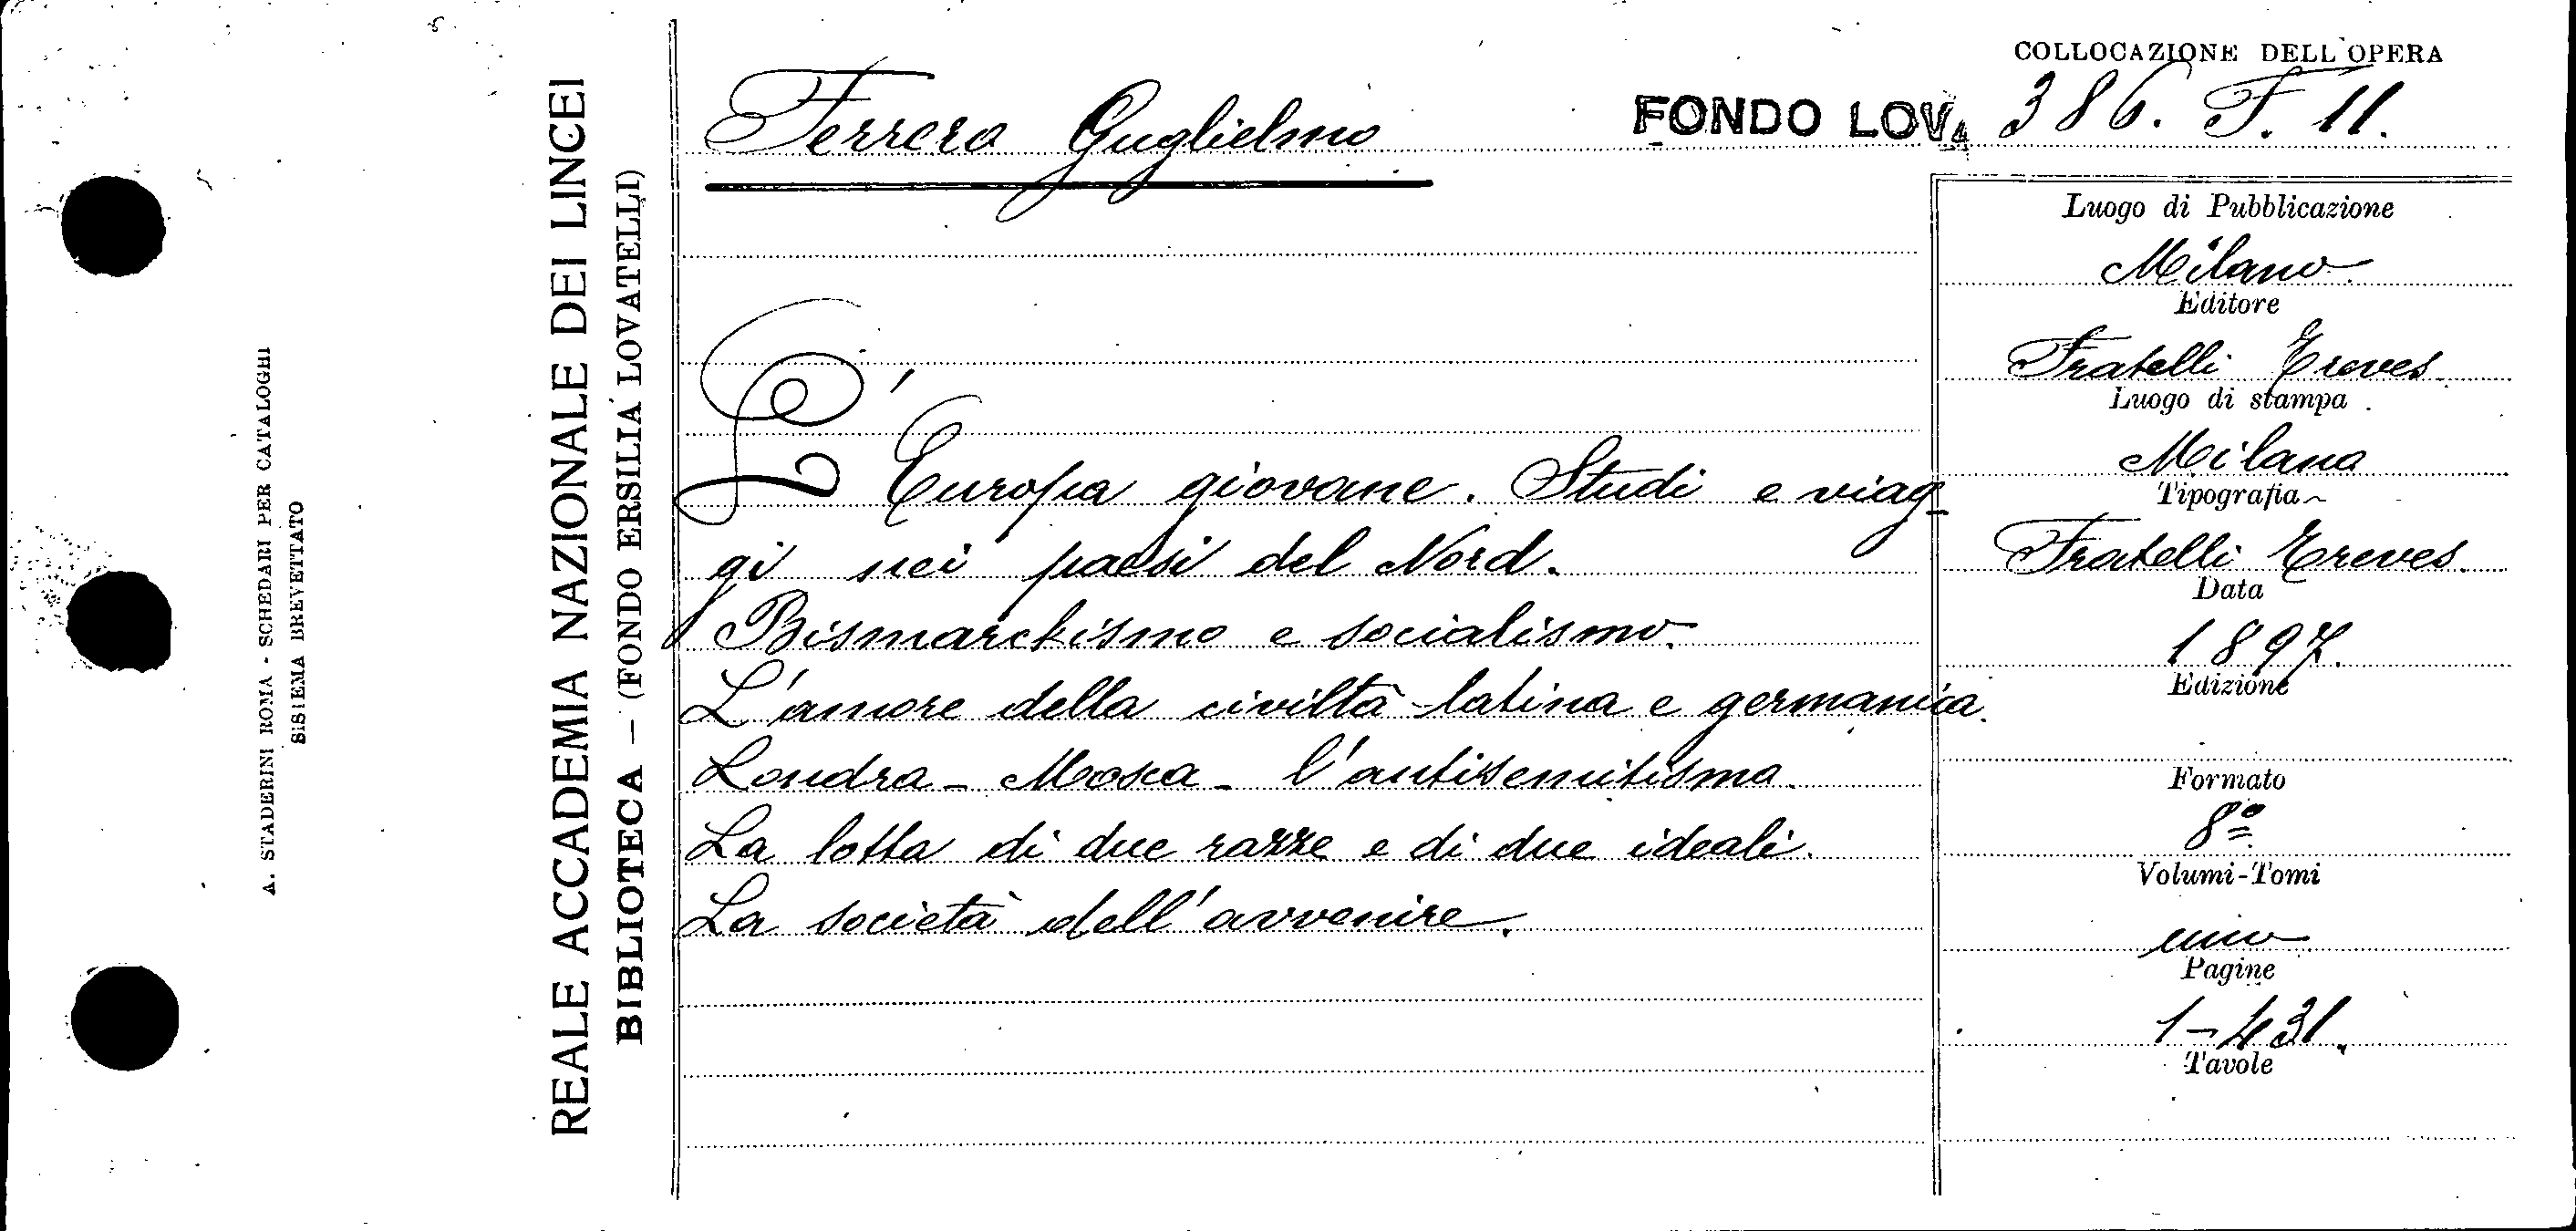 A. STADERINI ROMA - SCHEDARI PER CATALOGHI
SISTEMA BREVETTATO
REALE ACCADEMIA NAZIONALE DEI LINCEI
BIBLIOTECA — (FONDO ERSILIA LOVATELLI)
COLLOCAZIONE DELL'OPERA
Ferrero Guglielmo
FONDO LOV. 386. F. 11.
L'Europa giovane. Studi e viag-
gi nei paesi del Nord.
Bismarckismo e socialismo.
L'amore della civiltà latina e germanica.
Londra - Mosca - l'antisemitismo.
La lotta di due razze e di due ideali.
La società dell'avvenire.
Luogo di Pubblicazione
Milano
Editore
Fratelli Treves
Luogo di stampa
Milano
Tipografia
Fratelli Treves.
Data
1897.
Edizione
Formato
8º
Volumi-Tomi
uno
Pagine
1-431.
Tavole